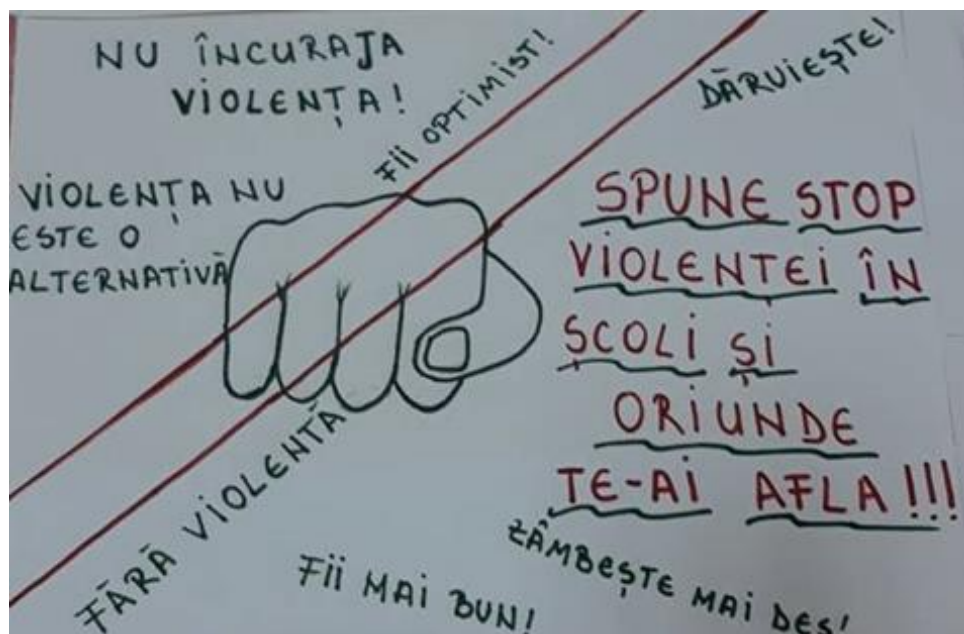 NU ÎNCURAJA
VIOLENȚA!
FII OPTIMIST!
DĂRUIEȘTE!
VIOLENȚA NU
ESTE O
ALTERNATIVĂ
SPUNE STOP
VIOLENȚEI ÎN
ȘCOLI ȘI
ORIUNDE
TE-AI AFLA!!!
FĂRĂ VIOLENTĂ
FII MAI BUN!
ZÂMBEȘTE MAI DES!